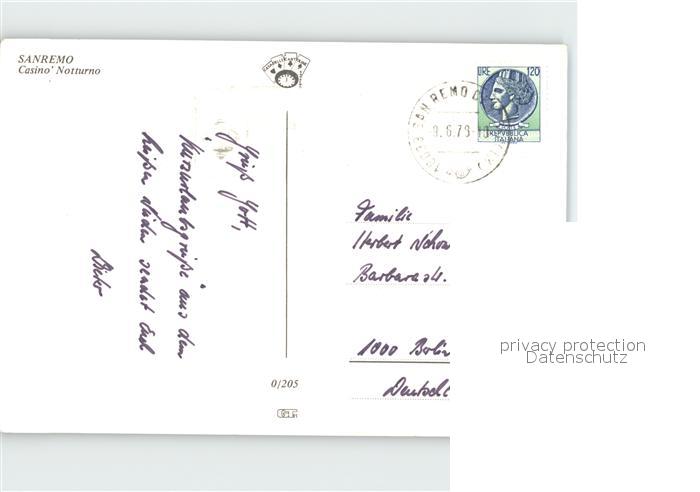 SANREMO
Casino' Notturno
LIRE 120
REPVBBLICA
ITALIANA
SAN REMO
9.6.79-10
Grüß Gott,
Kurzurlaubsgrüße aus dem
heißen Süden sendet Euch
Dieter
Familie
Herbert
Barbarastr.
1000 Berlin
Deutschl
0/205
privacy protection
Datenschutz